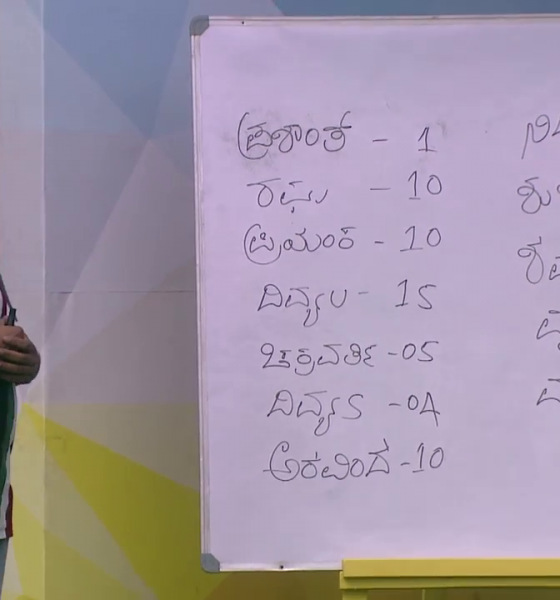 ಪ್ರಶಾಂತ್ - 1
ರಘು - 10
ಪ್ರಿಯಾಂಕ - 10
ದಿವ್ಯ U - 15
ಚಕ್ರವರ್ತಿ - 05
ದಿವ್ಯ S - 04
ಅರವಿಂದ - 10